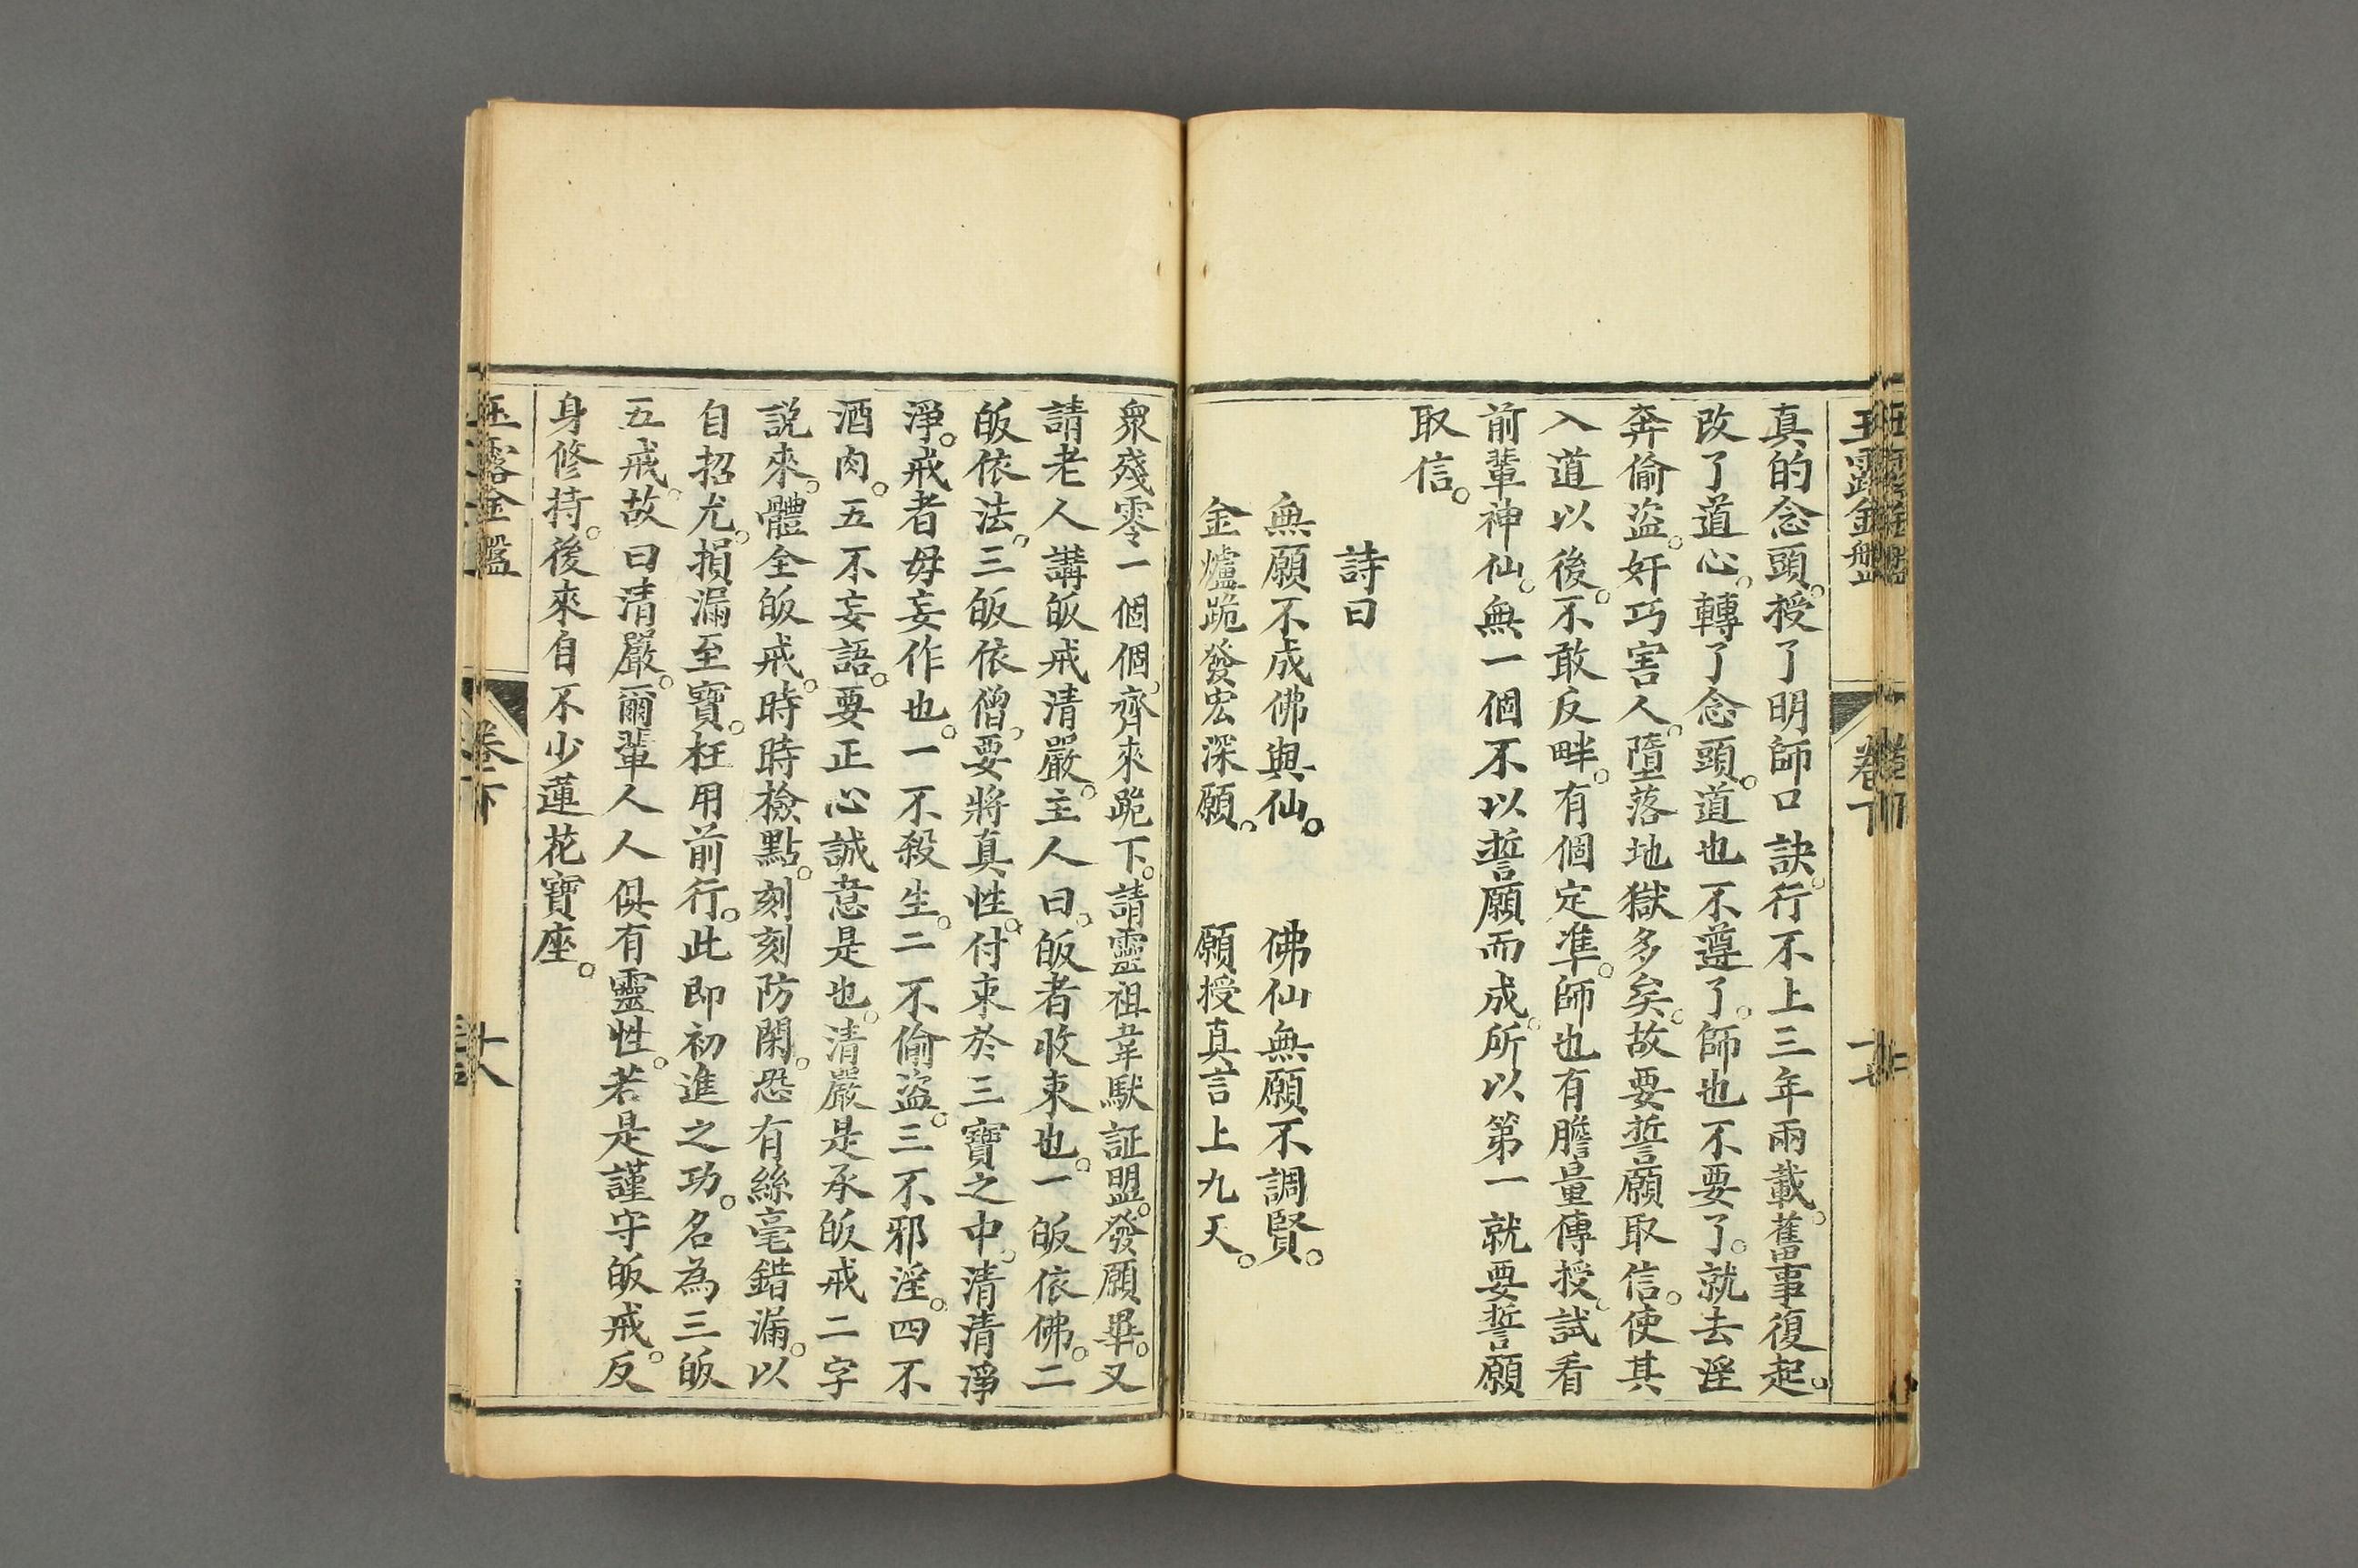 真的念頭。授了明師口訣。行不上三年兩載。舊事復起。
改了道心。轉了念頭。道也不遵了。師也不要了。就去淫
奔偷盜。奸巧害人。墮落地獄多矣。故要誓願取信。使其
入道以後。不敢反畔。有個定準。師也有膽量傳授。試看
前輩神仙。無一個不以誓願而成。所以第一就要誓願
取信。
詩曰
無願不成佛與仙。佛仙無願不調賢。
金爐跪發宏深願。願授真言上九天。
眾殘零一個個。齊來跪下。請靈祖韋馱証盟。發願畢。又
請老人講皈戒清嚴。主人曰。皈者收束也。一皈依佛。二
皈依法。三皈依僧。要將真性。付束於三寶之中。清清淨
淨。戒者毋妄作也。一不殺生。二不偷盜。三不邪淫。四不
酒肉。五不妄語。要正心誠意是也。清嚴是承皈戒二字
説來。體全皈戒。時時檢點。刻刻防閑。恐有絲毫錯漏。以
自招尤。損漏至寶。枉用前行。此即初進之功。名為三皈
五戒。故曰清嚴。爾輩人人俱有靈性。若是謹守皈戒。反
身修持。後來自不少蓮花寶座。
玉露金盤
卷下
十八